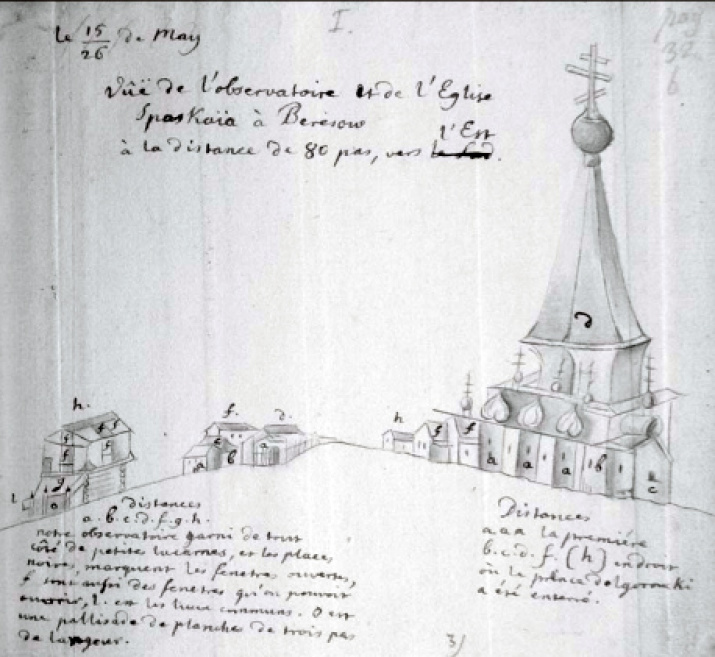 I.
pag
32
6
le 15/26 de May
Vûë de l'observatoire et de l'Eglise
Spaskaïa à Beresow
l'Est
à la distance de 80 pas, vers le Sud.
d
h.
f f
f
f
g
a
l
f.
d.
e
a
b
a
h
f
f
a
a
a
b
c
Distances
a. b. c. d. f. g. h.
notre observatoire garni de tout
côté de petites lucarnes, et les places
noires, marquent les fenetres ouvertes,
f sont aussi des fenetres qu'on pouvoit
ouvrir, l. est les lieux communs. O est
une pallisade de planches de trois pas
de largeur.
Distances
a a a la premiére
b. c. d. f. (h) endroit
où le prince dolgorouki
a été enterré.
3)